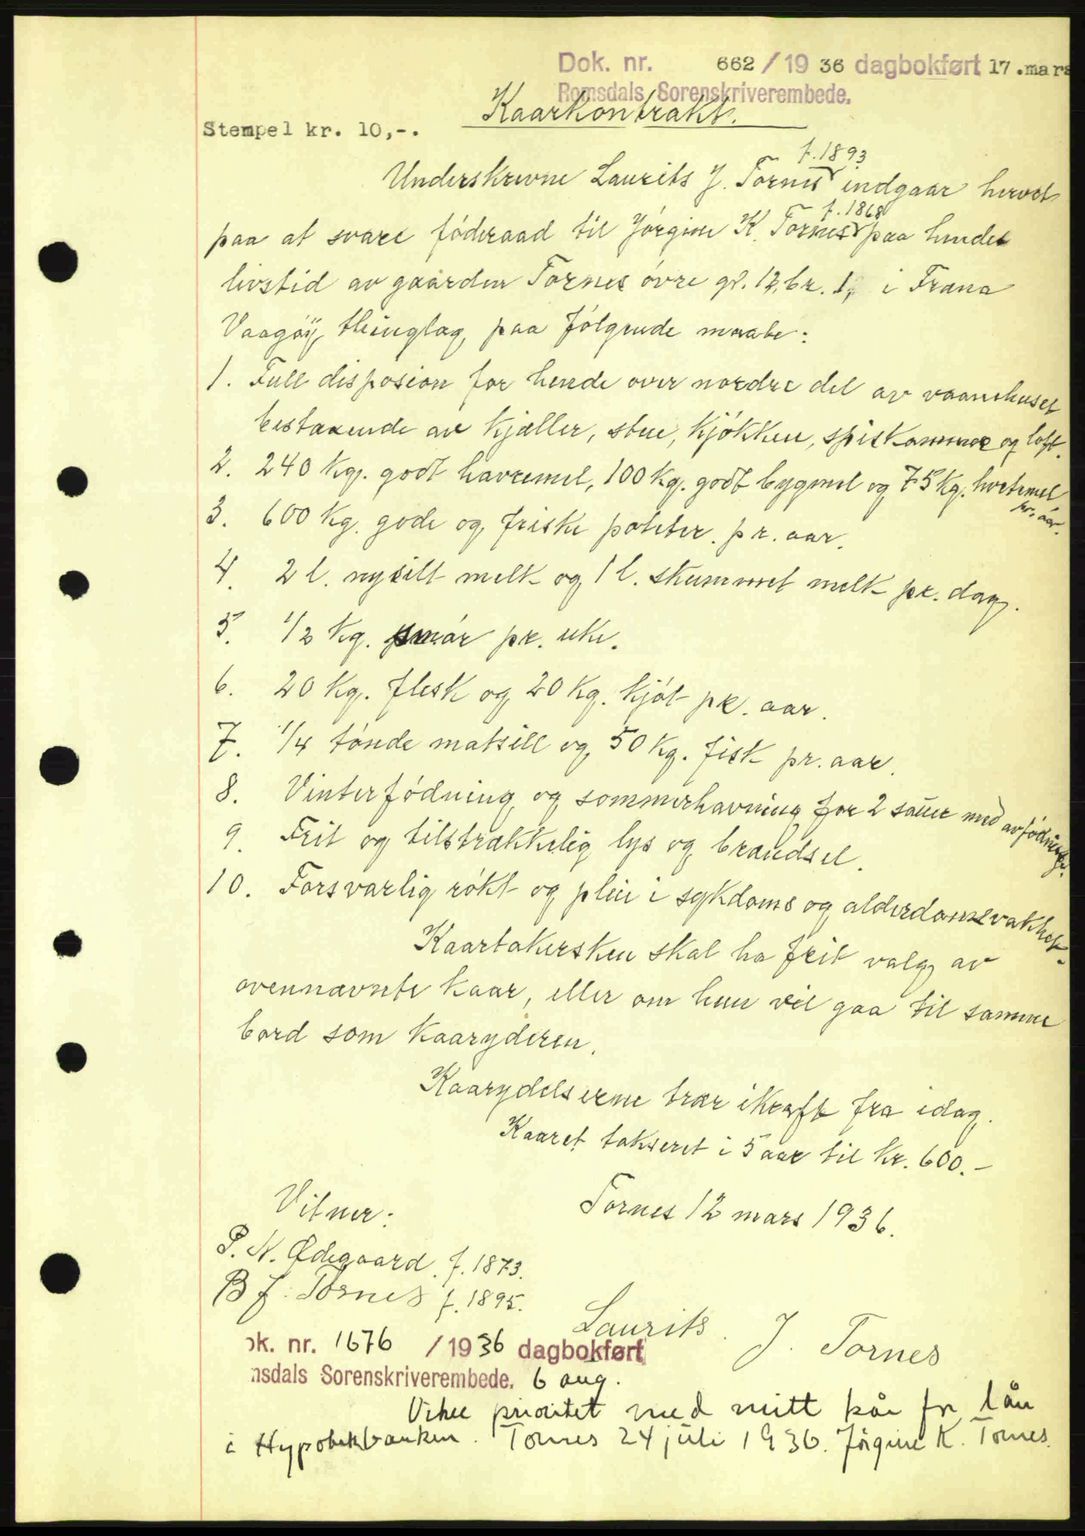 Dok. nr. 662 / 19 36 dagbokført 17. mars
Romsdals Sorenskriverembede.
Kaarkontrakt.
Stempel kr. 10,-.
f. 1893
Underskrevne Laurits J. Tornes indgaar hervet
f. 1868
paa at svare føderaad til Jørgine K. Tornes paa hendes
livstid av gaarden Tornes øvre gr. 12, br. 1, i Fræna
Vaagøy thinglag, paa følgende maate:
1. Full disposion for hende over nordre del av vaanehuset
bestaaende av kjæller, stue, kjøkken, spiskammer og loft.
2. 240 kg. godt havremel, 100 kg. godt bygmel og 75 kg. hvetemel
pr. aar.
3. 600 kg. gode og friske poteter. pr. aar.
4. 2 l. nysilt melk og 1 l. skummet melk pr. dag.
5. 1/2 kg. smør pr. uke.
6. 20 kg. flesk og 20 kg. kjøt pr. aar.
7. 1/4 tønde matsill og 50 kg. fisk pr. aar.
8. Vinterfødning og sommerhavning for 2 sauer med avfødninger.
9. Frit og tilstrækkelig lys og brændsel.
10. Forsvarlig røkt og pleie i sykdoms og alderdomsvakhet.
Kaartakersken skal ha frit valg av
ovennævnte kaar, eller om hun vil gaa til samme
bord som kaaryderen.
Kaarydelserne trær ikraft fra idag.
Kaaret takseret i 5 aar til kr. 600.-
Tornes 12 mars 1936.
Vitner:
P. N. Ødegaard. f. 1873.
B J. Tornes f. 1895.
Laurits J. Tornes
ok. nr. 1676 / 19 36 dagbokført
msdals Sorenskriverembede. 6 aug.
Viker prioritet med mitt kår for lån
i Hypotekbanken. Tornes 24 juli 1936. Jørgine K. Tornes.